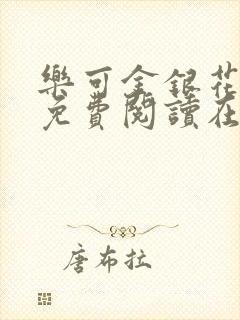 樂可金銀花
免費閱讀在
唐布拉